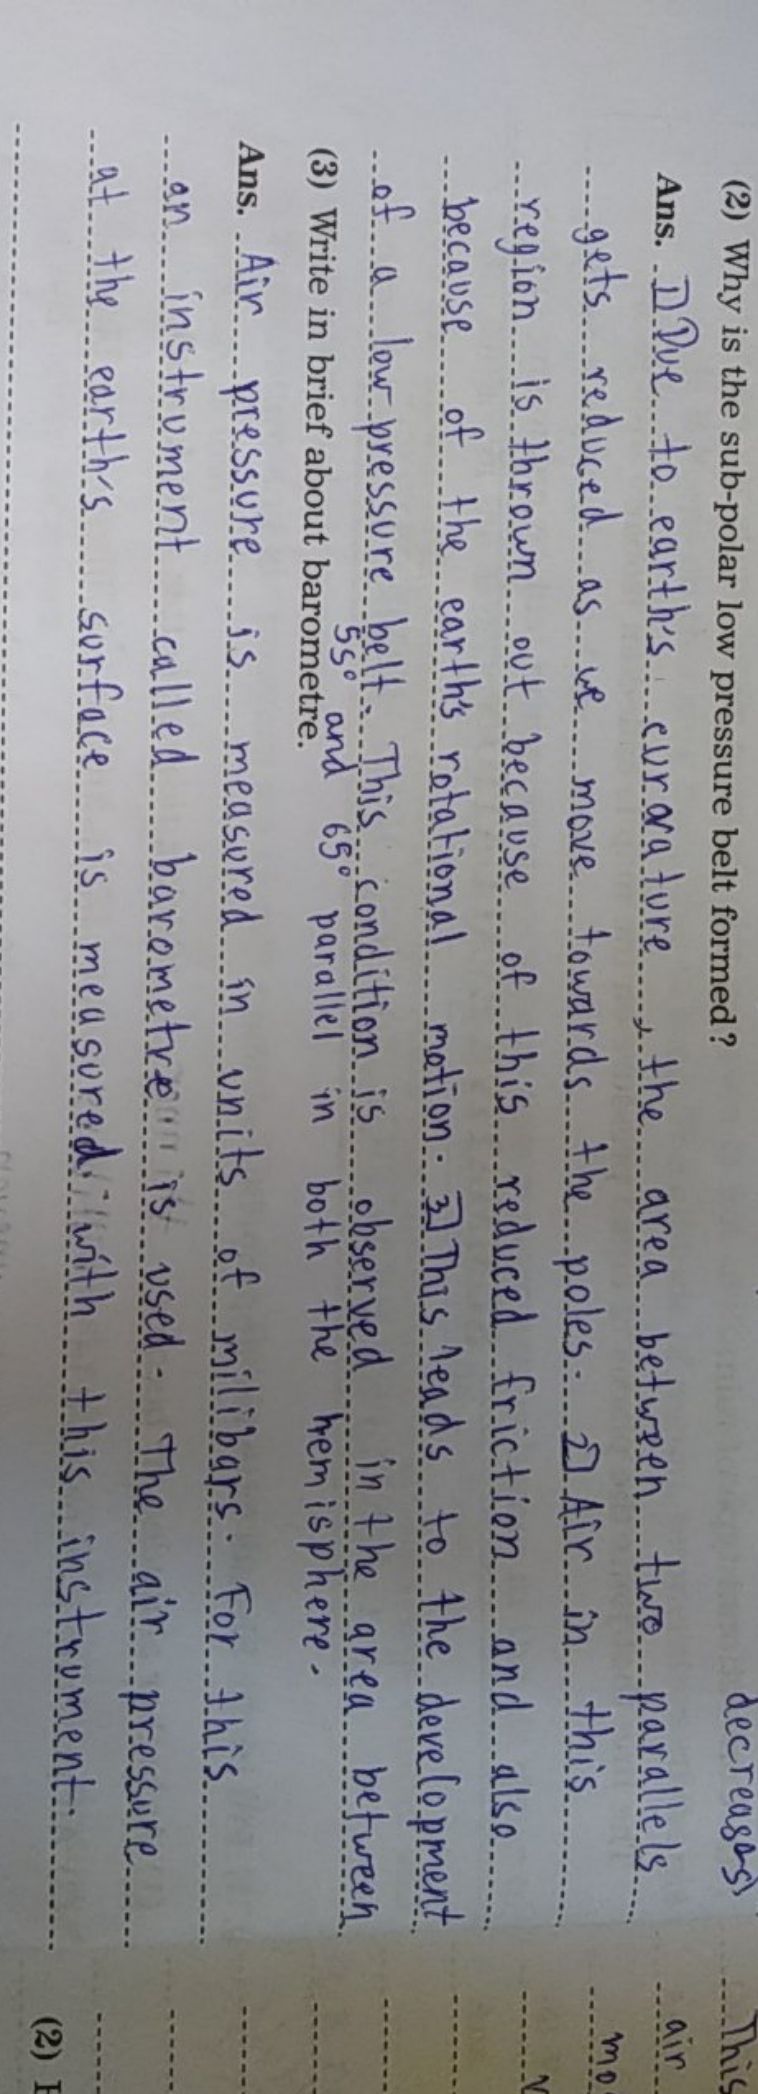 decreases
(2) Why is the sub-polar low pressure belt formed?
Ans. 1] Due to earth's curvature, the area between two parallels
gets reduced as we move towards the poles. 2] Air in this
region is thrown out because of this reduced friction and also
because of the earth's rotational motion. 3] This leads to the development
of a low pressure belt. This condition is observed in the area between
55° and 65° parallel in both the hemisphere.
(3) Write in brief about barometre.
Ans. Air pressure is measured in units of milibars. For this
an instrument called barometre is used. The air pressure
at the earth's surface is measured with this instrument.
This
air
mo
(2)